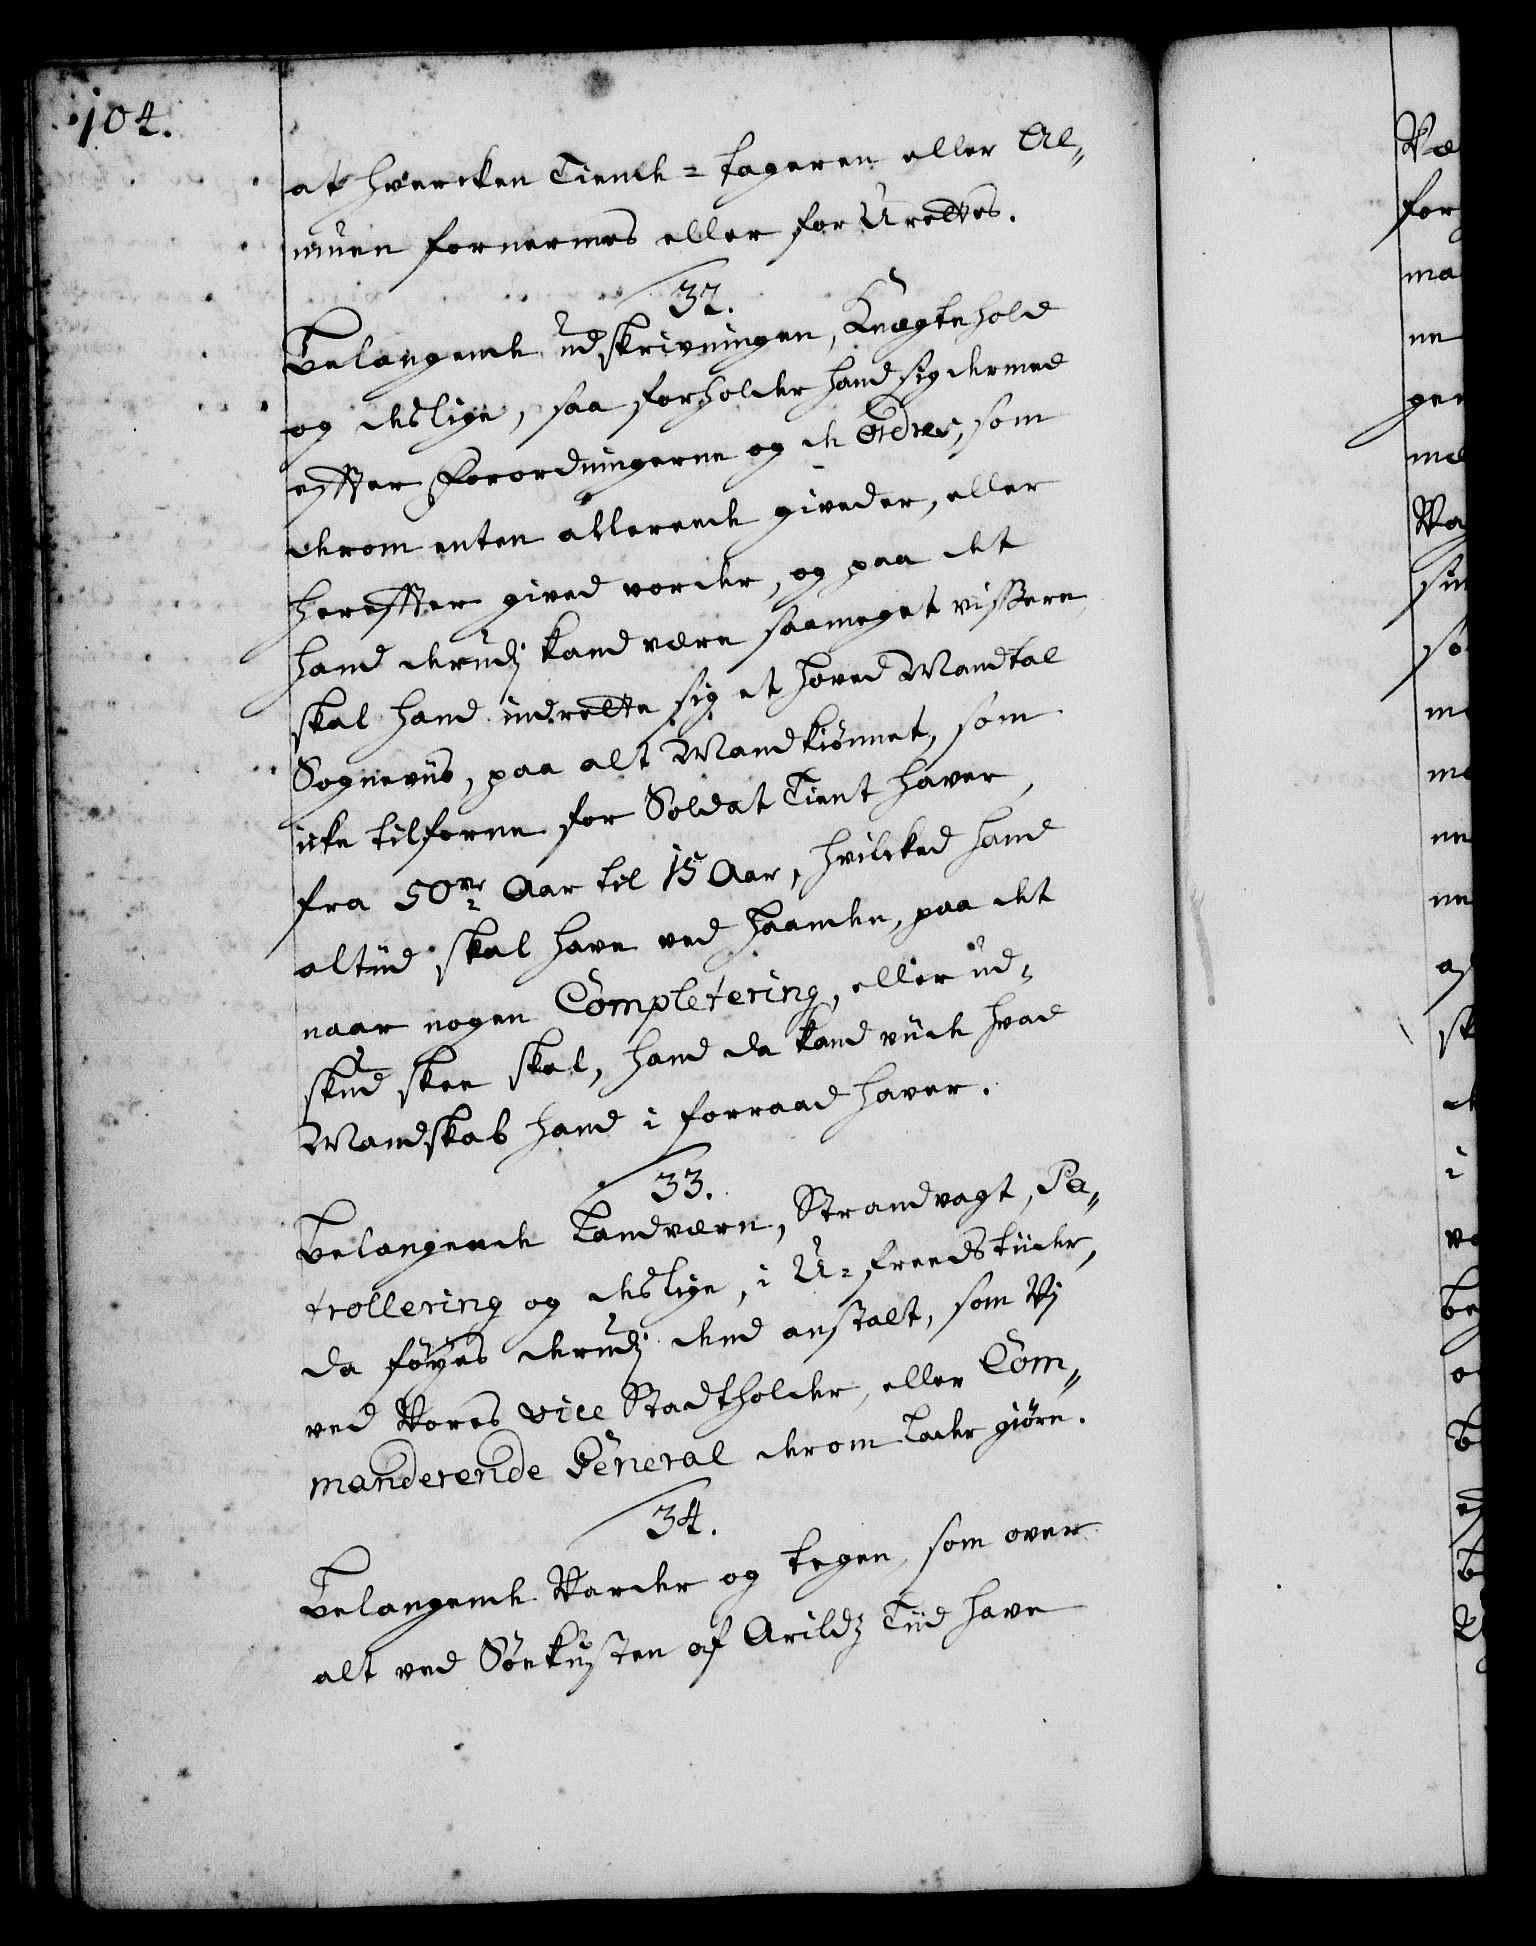 104.
at hvercken Tiende=tageren eller Al„
muen fornermes eller for Urettes.
32.
Belangende udskrivningen, Knægtehold
og deslige, saa forholder hand sig dermed
effter Forordningerne og de Ordres, som
derom enten allerende giveder, eller
hereffter gived vorder, og paa det
hand derudj kand være saameget vissere,
skal hand indrette sig et Hoved Mandtal
Sogneviis, paa alt Mandkiønnet, som
icke tilforne for Soldat Tient haver,
fra 50ve Aar til 15 Aar, hvilcked hand
altiid skal have ved Haanden, paa det
naar nogen Completering, eller ud„
skud skee skal, hand da kand viide hvad
Mandskab hand i forraad haver.
33.
Belangende Landværn, Strandvagt, Pa„
trollering og deslige, i U=freedstiider,
da føyes derudj dend anstalt, som Vj
ved Vores Vice Stadtholder, eller Com„
manderende General derom Lader giøre.
34.
Belangende Varder og tegen, som over
alt ved Søekusten af Arildz Tiid have
Væ
for
ma
ne
ger
me
Va
sin
so
me
me
ne
ne
sk
i
be